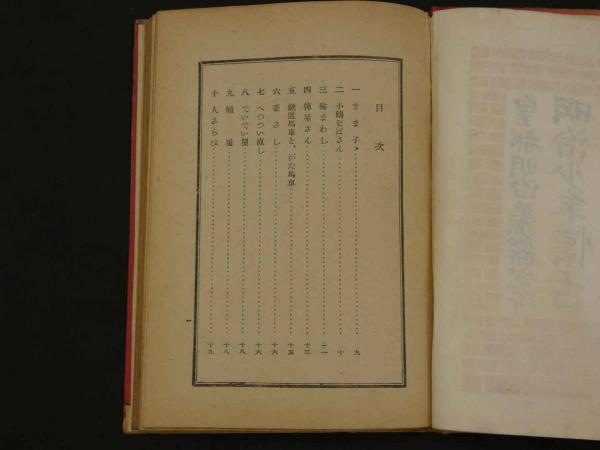 目次
一 まま子 九
二 小鶴をばさん 十
三 輪まわし 十一
四 俥屋さん 十三
五 鉄道馬車と、がた馬車 十五
六 雀さし 十六
七 へつつい直し 十六
八 でいでい屋 十八
九 桶屋 十八
十 人さらひ 十九
一
明治少年懐古